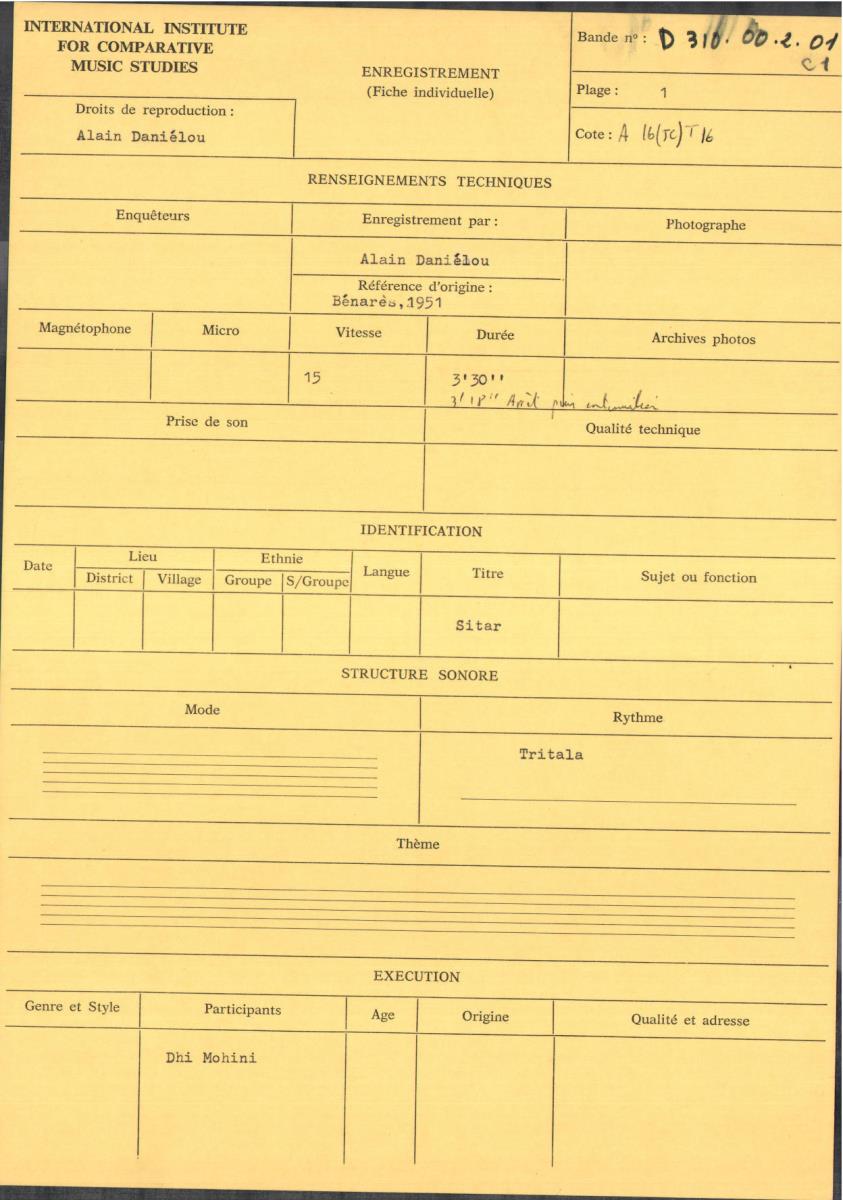 INTERNATIONAL INSTITUTE
FOR COMPARATIVE
MUSIC STUDIES
Droits de reproduction :
Alain Daniélou
ENREGISTREMENT
(Fiche individuelle)
Bande nº : D 310.00.2.01
C1
Plage : 1
Cote : A 16(JC)T16
RENSEIGNEMENTS TECHNIQUES
Enquêteurs
Enregistrement par :
Photographe
Alain Daniélou
Référence d'origine :
Bénarès,1951
Magnétophone
Micro
Vitesse
Durée
Archives photos
15
3'30''
3'18" Arrêt puis
Prise de son
Qualité technique
IDENTIFICATION
Date
Lieu
Ethnie
Langue
Titre
Sujet ou fonction
District
Village
Groupe
S/Groupe
Sitar
STRUCTURE SONORE
Mode
Rythme
Tritala
Thème
EXECUTION
Genre et Style
Participants
Age
Origine
Qualité et adresse
Dhi Mohini